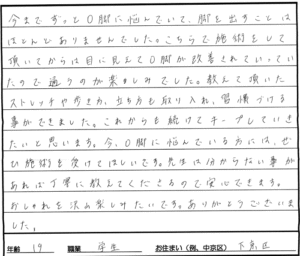 今までずっとO脚に悩んでいて、脚を出すことは
ほとんどありませんでした。こちらで施術をして
頂いてからは目に見えてO脚が改善されていってい
たので通うのが楽しみでした。教えて頂いた
ストレッチや歩き方、立ち方も取り入れ、習慣づける
事ができました。これからも続けてキープしていき
たいと思います。今、O脚に悩んでいる方には、ぜ
ひ施術を受けてほしいです。先生は分からない事が
あれば丁寧に教えてくださるので安心できます。
おしゃれを沢山楽しみたいです。ありがとうございま
した。
年齢 19 職業 学生 お住まい(例、中京区) 下京区